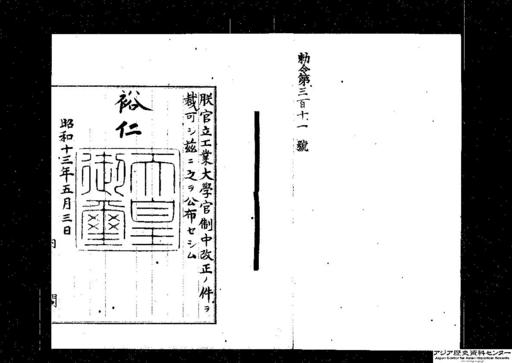 勅令第三百十一號
朕官立工業大學官制中改正ノ件ヲ
裁可シ茲ニ之ヲ公布セシム
裕仁
天皇御璽
昭和十三年五月三日
内閣
アジア歴史資料センター
Japan Center for Asian Historical Records